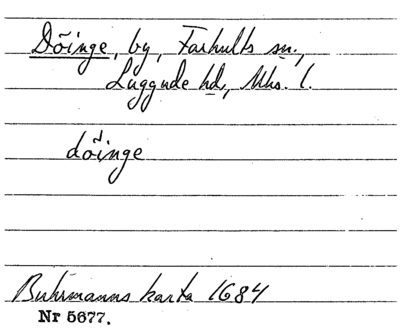 Döinge, by, Farhults sn.,
Luggude hd, Mhs. l.
döinge
Buhrmanns karta 1684
Nr 5677.